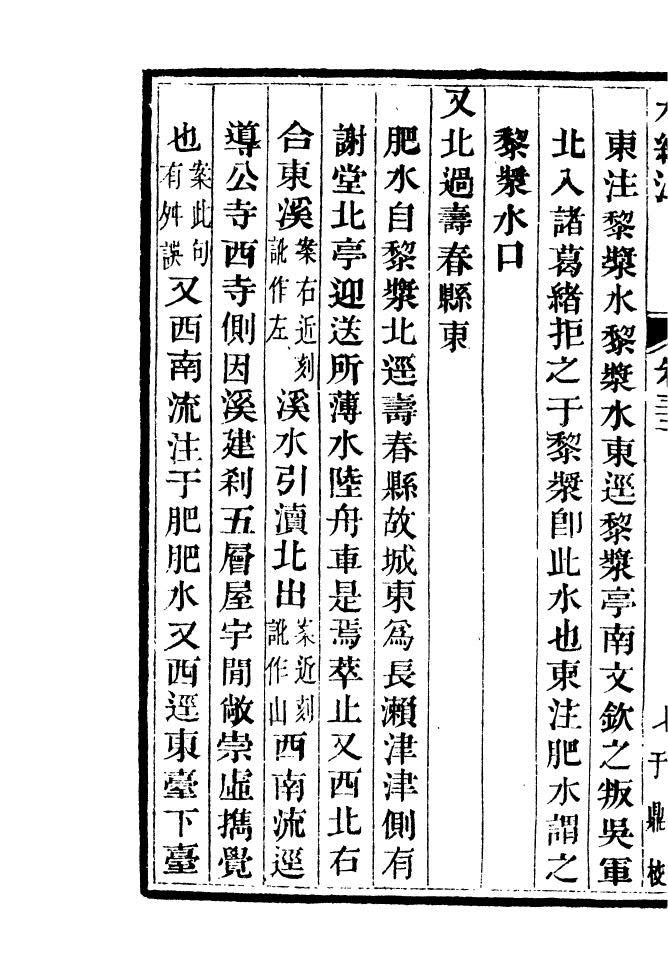 水經注 卷三二 于鼎校
東注黎漿水黎漿水東逕黎漿亭南文欽之叛吳軍
北入諸葛緒拒之于黎漿卽此水也東注肥水謂之
黎漿水口
又北過壽春縣東
肥水自黎漿北逕壽春縣故城東爲長瀨津津側有
謝堂北亭迎送所薄水陸舟車是焉萃止又西北右
合東溪案右近刻訛作左溪水引瀆北出案近刻訛作山西南流逕
導公寺西寺側因溪建刹五層屋宇閒敞崇虛攜覺
也案此句有舛誤又西南流注于肥肥水又西逕東臺下臺